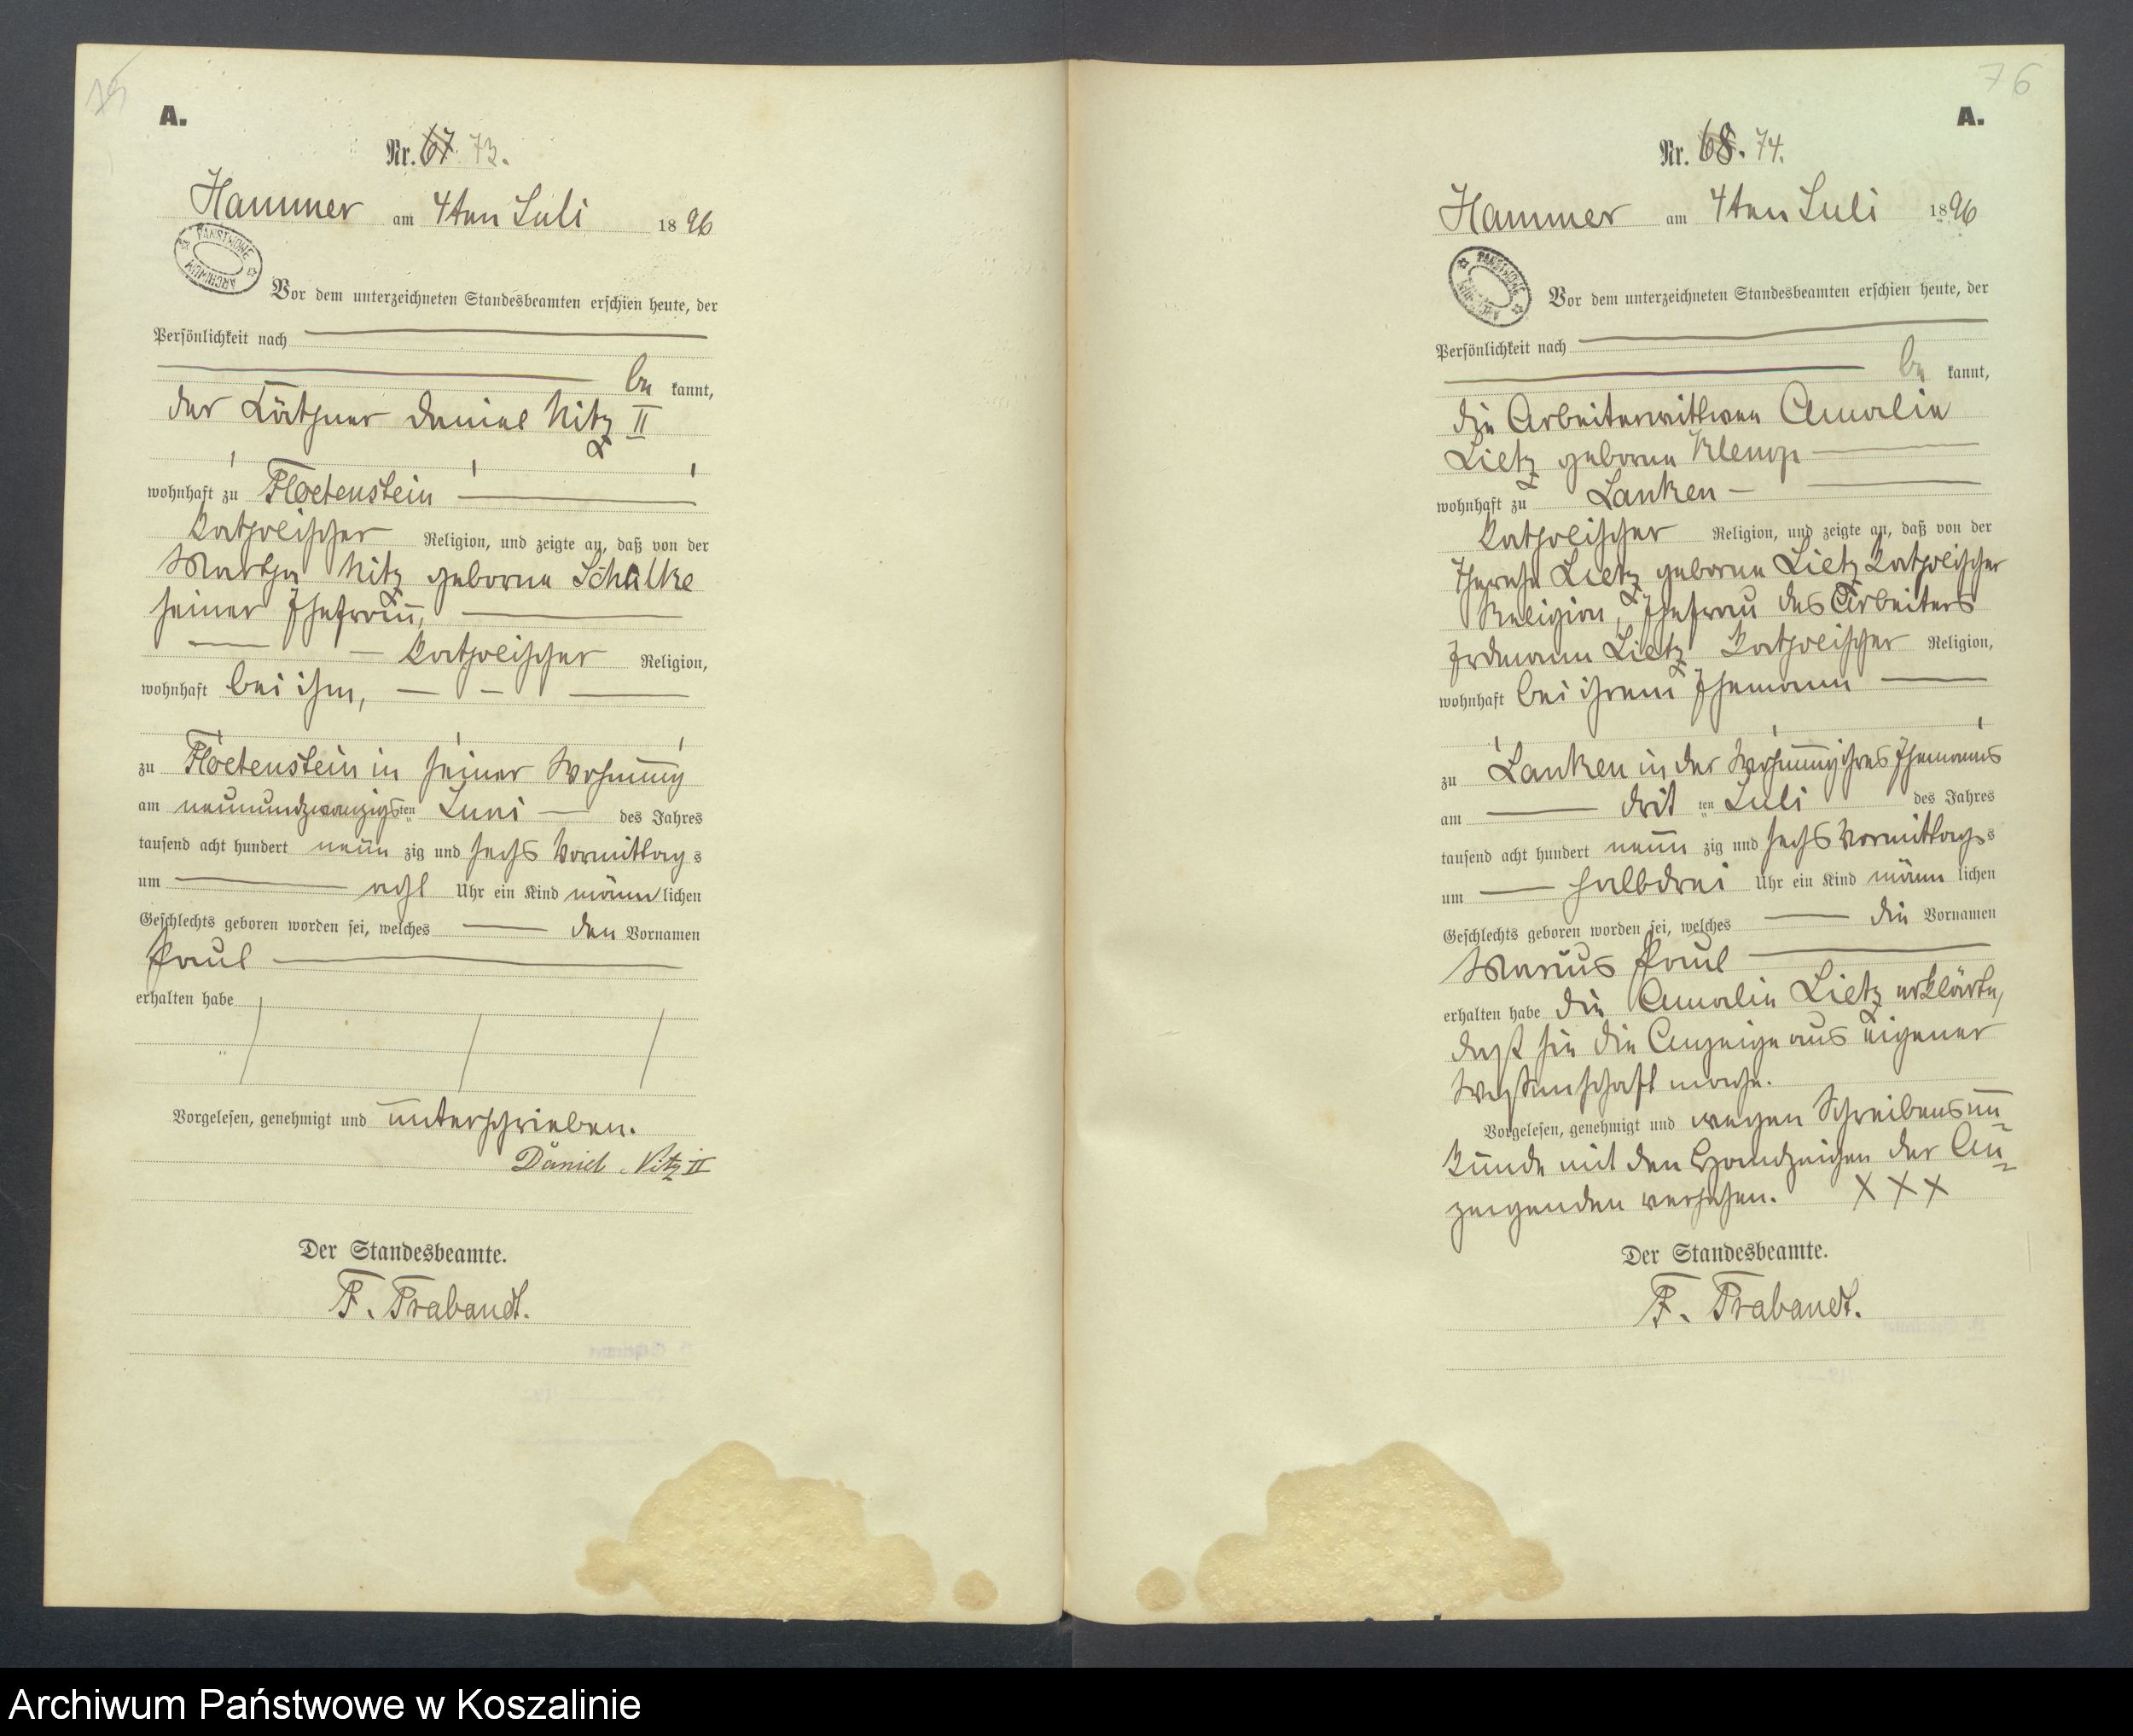 75
A.
Nr. 67 73.
Hammer am 4ten Juli 1896
PAŃSTWOWE ARCHIWUM
Vor dem unterzeichneten Standesbeamten erschien heute, der
Persönlichkeit nach
be kannt,
der Käthner Daniel Nitz II
wohnhaft zu Floetenstein
katholischer Religion, und zeigte an, daß von der
Martha Nitz geborne Schülke
seiner Ehefrau,
katholischer Religion,
wohnhaft bei ihm,
zu Floetenstein in seiner Wohnung
am neunundzwanzigsten Juni des Jahres
tausend acht hundert neun zig und sechs Vormittags
um acht Uhr ein Kind männlichen
Geschlechts geboren worden sei, welches den Vornamen
Paul
erhalten habe
Vorgelesen, genehmigt und unterschrieben.
Daniel Nitz II
Der Standesbeamte.
F. Trabandt.
76
A.
Nr. 68. 74.
Hammer am 4ten Juli 1896
PAŃSTWOWE ARCHIWUM
Vor dem unterzeichneten Standesbeamten erschien heute, der
Persönlichkeit nach
be kannt,
die Arbeiterwittwe Amalie
Lietz geborne Klemp
wohnhaft zu Lanken
katholischer Religion, und zeigte an, daß von der
Therese Lietz geborne Lietz katholischer
Religion, Ehefrau des Arbeiters
Erdmann Lietz katholischer Religion,
wohnhaft bei ihrem Ehemann
zu Lanken in der Wohnung ihres Ehemanns
am dritten Juli des Jahres
tausend acht hundert neun zig und sechs Vormittags
um halbdrei Uhr ein Kind männ lichen
Geschlechts geboren worden sei, welches die Vornamen
Marius Paul
erhalten habe die Amalie Lietz erklärte,
daß sie die Anzeige aus eigener
Wissenschaft mache.
Vorgelesen, genehmigt und wegen Schreibensun=
kunde mit den Handzeichen der An=
zeigenden versehen. XXX
Der Standesbeamte.
F. Trabandt.
Archiwum Państwowe w Koszalinie